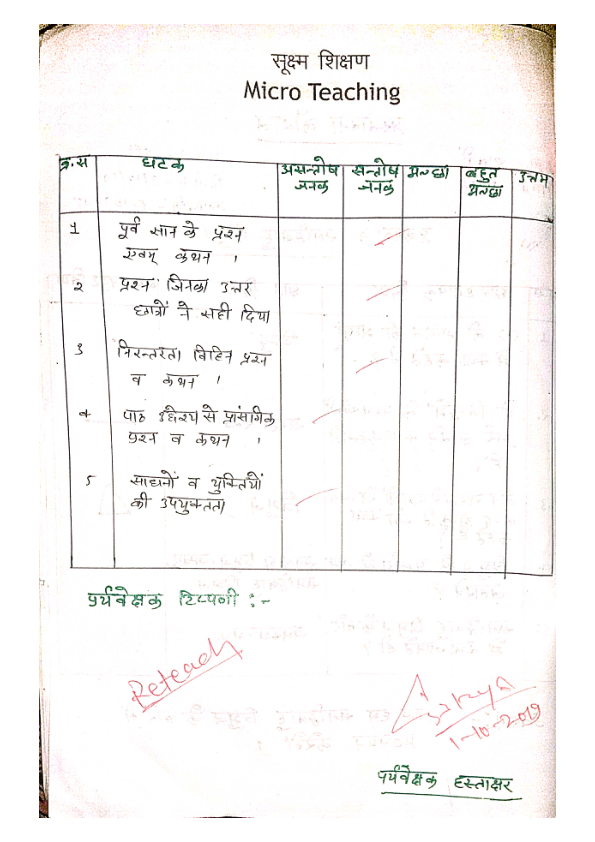 सूक्ष्म शिक्षण
Micro Teaching
क्र.स घटक असन्तोष जनक सन्तोष जनक अच्छा बहुत अच्छा उत्तम
1 पूर्व ज्ञान के प्रश्न
एवम् कथन ,
2 प्रश्न जिनका उत्तर
छात्रों ने सही दिया
3 निरन्तरता विहिन प्रश्न
व कथन ,
4 पाठ उद्देश्य से प्रासंगिक
प्रश्न व कथन ,
5 साधनों व युक्तियों
की उपयुक्तता
पर्यवेक्षक टिप्पणी :-
Reteach
1-10-2019
पर्यवेक्षक हस्ताक्षर